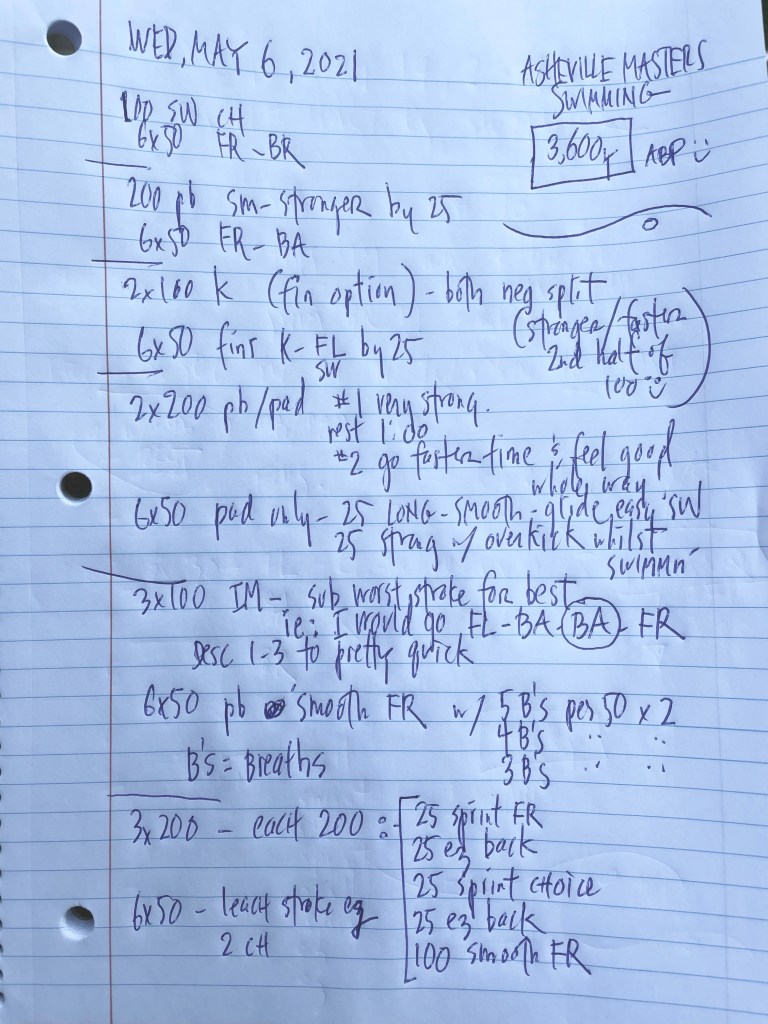 WED, MAY 6, 2021
ASHEVILLE MASTERS
SWIMMING
3,600y ABP
100 SW CH
6x50 FR-BR
200 pb sm-stronger by 25
6x50 FR-BA
2x100 K (fin option) - both neg split
(stronger/faster
2nd half of
100 )
6x50 fins K-FL by 25
SW
2x200 pb/pad #1 very strong.
rest 1:00
#2 go faster time & feel good
whole way
6x50 pad only - 25 LONG-SMOOTH-glide easy SW
25 strong w/ overkick whilst
swimmn'
3x100 IM - sub worst stroke for best
ie: I would go FL-BA-BA-FR
Desc 1-3 to pretty quick
6x50 pb smooth FR w/ 5 B's per 50 x 2
4 B's " "
3 B's " "
B's = Breaths
3x200 - each 200 :- 25 sprint FR
25 ez back
25 sprint choice
25 ez back
100 smooth FR
6x50 - 1 each stroke ez
2 CH